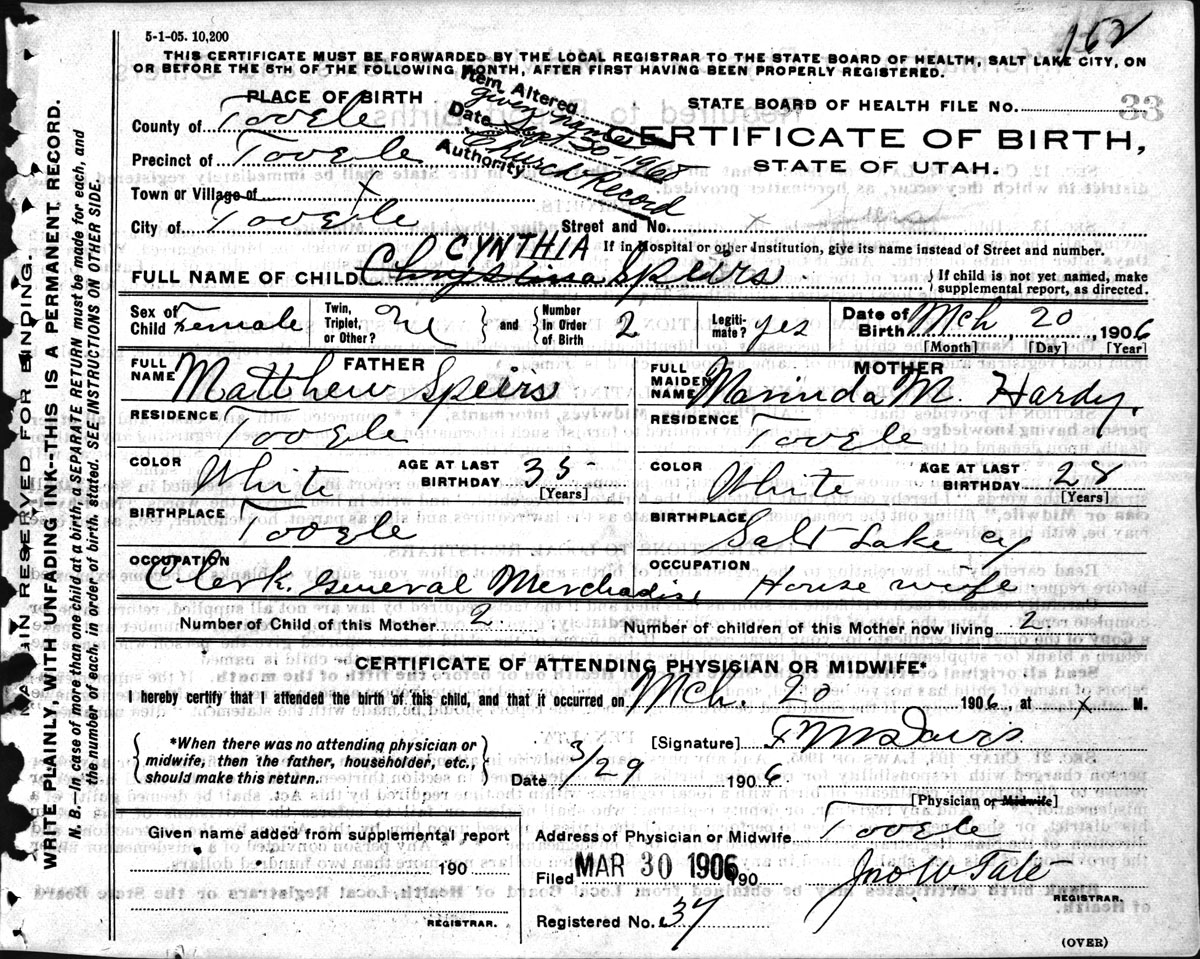 5-1-05. 10,200
162
THIS CERTIFICATE MUST BE FORWARDED BY THE LOCAL REGISTRAR TO THE STATE BOARD OF HEALTH, SALT LAKE CITY, ON
OR BEFORE THE 5TH OF THE FOLLOWING MONTH, AFTER FIRST HAVING BEEN PROPERLY REGISTERED.
PLACE OF BIRTH
Item Altered given name
Date Sept 30-1968
Authority Church Record
STATE BOARD OF HEALTH FILE NO. 33
County of Tooele
CERTIFICATE OF BIRTH,
Precinct of Tooele
STATE OF UTAH.
Town or Village of
City of Tooele Street and No.
CYNTHIA If in Hospital or other Institution, give its name instead of Street and number.
FULL NAME OF CHILD Chrystina Speirs { If child is not yet named, make
supplemental report, as directed.
Sex of Child Female Twin, Triplet, or Other? and { Number in Order of Birth 2 Legiti- mate? yes Date of Birth Mch 20, 1906
[Month] [Day] [Year]
FATHER MOTHER
FULL NAME Matthew Speirs FULL MAIDEN NAME Marinda M. Hardy
RESIDENCE Tooele RESIDENCE Tooele
COLOR White AGE AT LAST BIRTHDAY 35 [Years] COLOR White AGE AT LAST BIRTHDAY 28 [Years]
BIRTHPLACE Tooele BIRTHPLACE Salt Lake Cy
OCCUPATION Clerk. General Merchadise OCCUPATION House wife
Number of Child of this Mother 2 Number of children of this Mother now living 2
CERTIFICATE OF ATTENDING PHYSICIAN OR MIDWIFE*
I hereby certify that I attended the birth of this child, and that it occurred on Mch. 20 1906, at x M.
{ *When there was no attending physician or
midwife, then the father, householder, etc.,
should make this return. }
[Signature] F M Davis
Date 3/29 1906
[Physician or Midwife]
Given name added from supplemental report
190
REGISTRAR.
Address of Physician or Midwife Tooele
Filed MAR 30 1906 190 Jno W Tate
REGISTRAR.
Registered No. 37
(OVER)
MARGIN RESERVED FOR BINDING.
WRITE PLAINLY, WITH UNFADING INK--THIS IS A PERMANENT RECORD.
N. B.—In case of more than one child at a birth, a SEPARATE RETURN must be made for each, and
the number of each, in order of birth, stated. SEE INSTRUCTIONS ON OTHER SIDE.